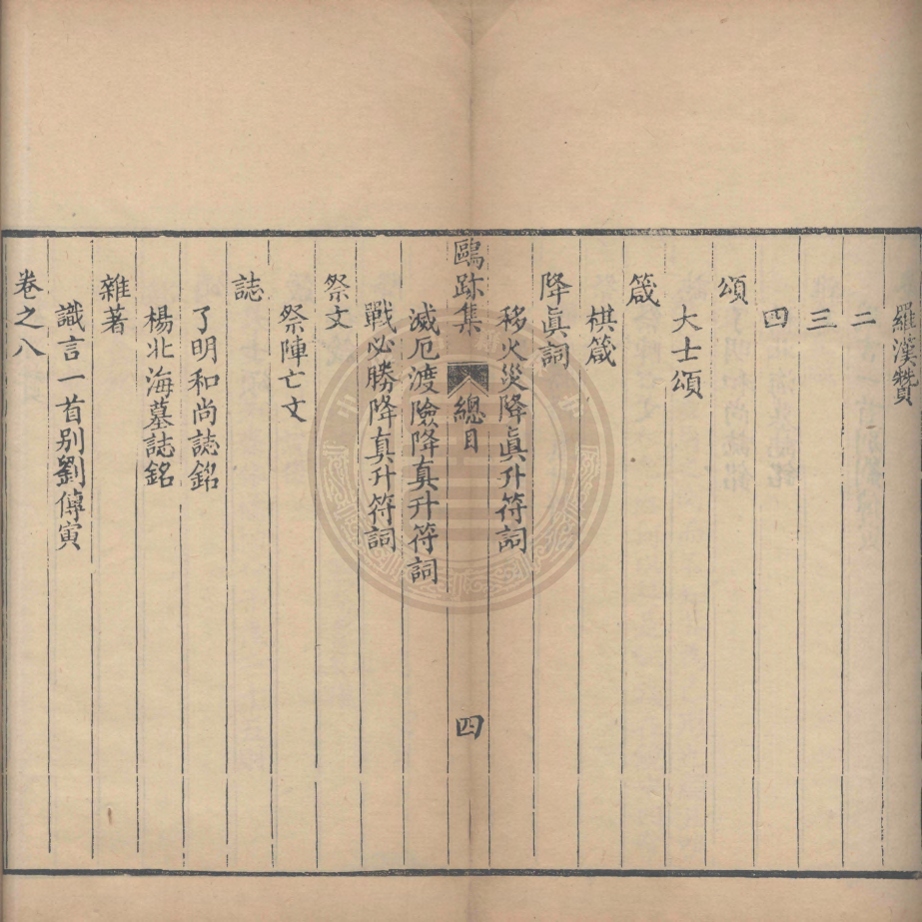 羅漢贊
二
三
四
頌
大士頌
箴
棋箴
降眞詞
移火災降眞升符詞
鷗跡集 總目 四
滅厄渡險降真升符詞
戰必勝降真升符詞
祭文
祭陣亡文
誌
了明和尚誌銘
楊北海墓誌銘
雜著
識言一首别劉傅寅
卷之八